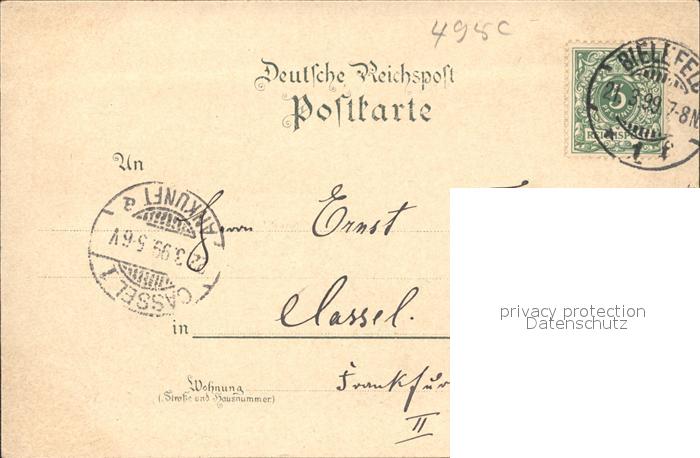 495c
Deutsche Reichspost
Postkarte
BIELEFELD
3.99.7-8N
1 f
5
REICHSPOST
An
ANKUNFT a.
3.99.5-6V
CASSEL 1
Herrn Ernst
in Cassel.
Wohnung
(Straße und Hausnummer)
II
privacy protection
Datenschutz